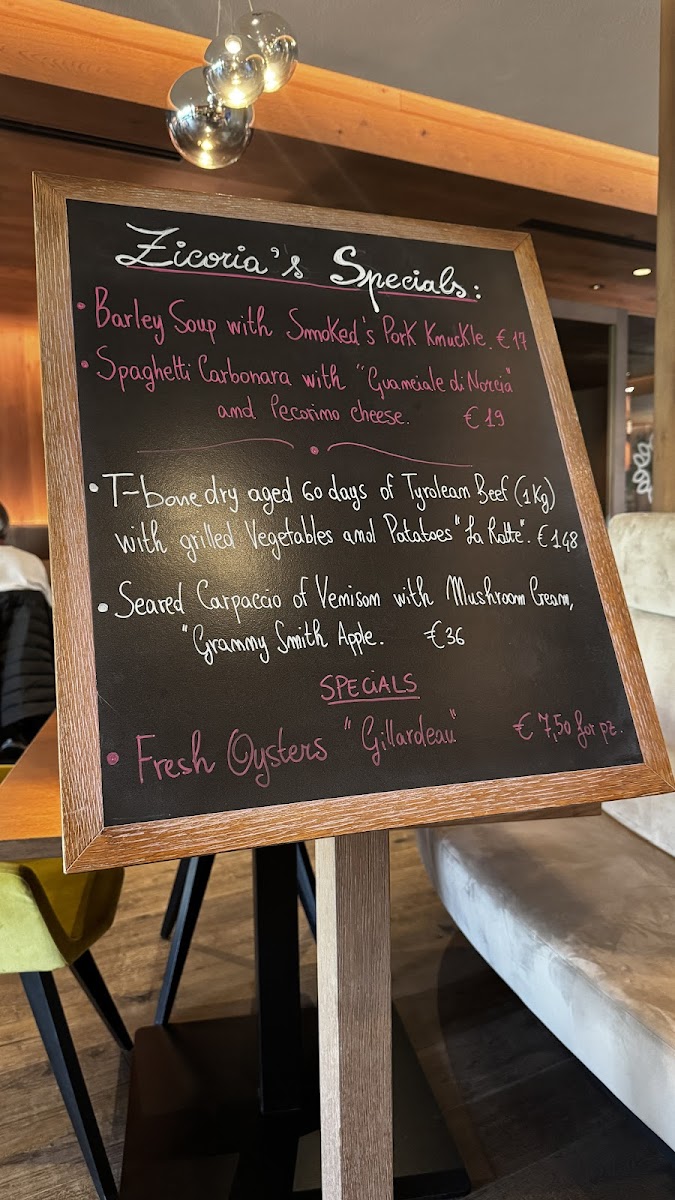 Zicoria's Specials:
• Barley Soup with Smoked's Pork Knuckle. € 17
• Spaghetti Carbonara with "Guanciale di Norcia"
and Pecorino cheese. € 19
• T-bone dry aged 60 days of Tyrolean Beef (1Kg)
with grilled Vegetables and Patatoes "La Ratte". € 148
• Seared Carpaccio of Venison with Mushroom Cream,
"Granny Smith Apple. € 36
SPECiALS
• Fresh Oysters "Gillardeau" € 7,50 for pz.